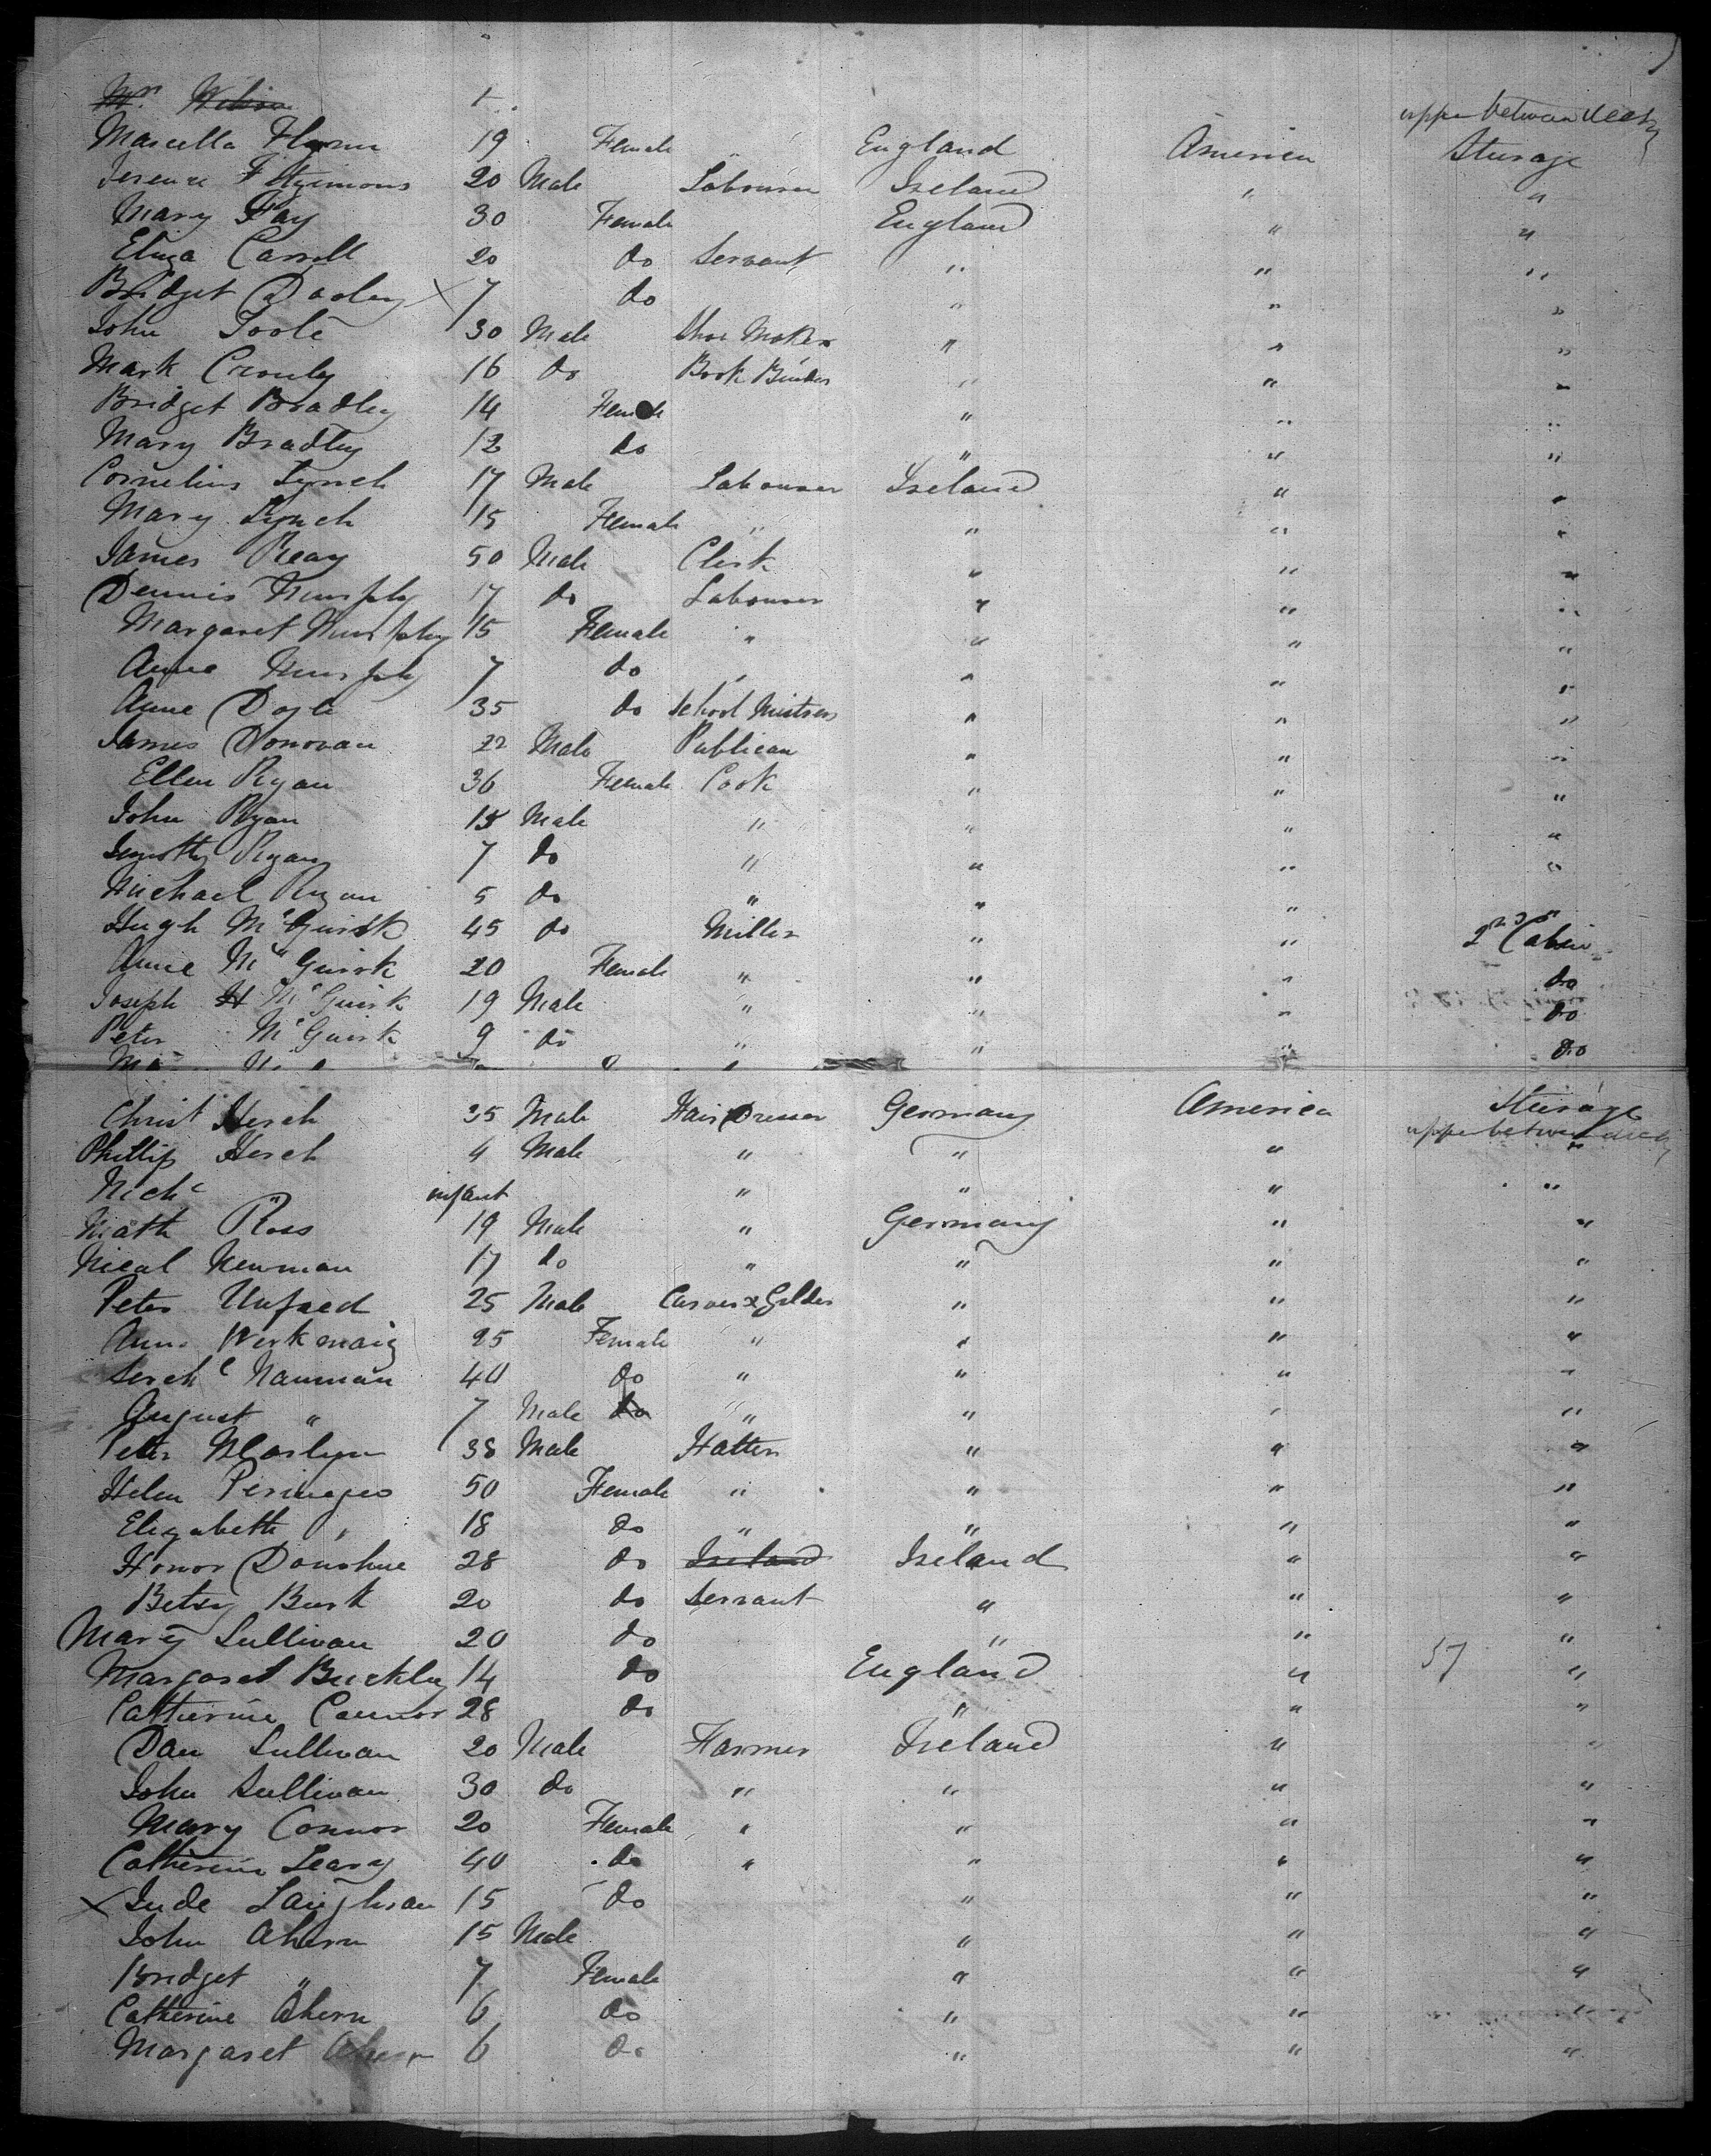 Mr. Wilson 1
upper between decks
Marcella Flynn 19 Female England America Steerage
Terence Fitzsimons 20 Male Labourer Ireland " "
Mary Fay 30 Female England " "
Eliza Carroll 20 do Servant " " "
Bridget Dooley 7 do " " "
John Toole 30 Male Shoe Maker " " "
Mark Crowley 16 do Book Binder " " "
Bridget Bradley 14 Female " " "
Mary Bradley 12 do " " "
Cornelius Lynch 17 Male Labourer Ireland " "
Mary Lynch 15 Female " " " "
James Reay 50 Male Clerk " " "
Dennis Murphy 17 do Labourer " " "
Margaret Murphy 15 Female " " " "
Anne Murphy 7 do " " " "
Anne Doyle 35 do School Mistress " " "
James Donovan 22 Male Publican " " "
Ellen Ryan 36 Female Cook " " "
John Ryan 13 Male " " " "
Timothy Ryan 7 do " " " "
Michael Ryan 5 do " " " "
Hugh McGuirk 45 do Miller " " 2nd Cabin
Anne McGuirk 20 Female " " " do
Joseph McGuirk 19 Male " " " do
Peter McGuirk 9 do " " " do
Christ Hersch 35 Male Hair Dresser Germany America Steerage
upper between decks
Phillip Hersch 4 Male " " " "
Nichc infant " " " "
Math Ross 19 Male " Germany " "
Nical Newman 17 do " " " "
Peter Unfried 25 Male Carver & Gilder " " "
Ann 25 Female " " " "
Nauman 40 do " " " "
August " 7 Male do " " " "
Peter 38 Male Hatter " " "
Helen 50 Female " " " "
Elizabeth " 18 do " " " "
Honor Donohue 28 do Ireland Ireland " "
Betsy Burk 20 do Servant " " "
Mary Sullivan 20 do " " "
Margaret Buckley 14 do England " 57 "
Catherine Connor 28 do " " "
Dan Sullivan 20 Male Farmer Ireland " "
John Sullivan 30 do " " " "
Mary Connor 20 Female " " " "
Catherine Leary 40 do " " " "
x Jude Laughran 15 do " " "
John Ahern 15 Male " " "
Bridget " 7 Female " " "
Catherine Ahern 6 do " " "
Margaret Ahern 6 do " " "